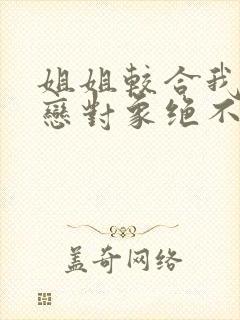 姐姐較合我
戀對象绝不
盖奇网络